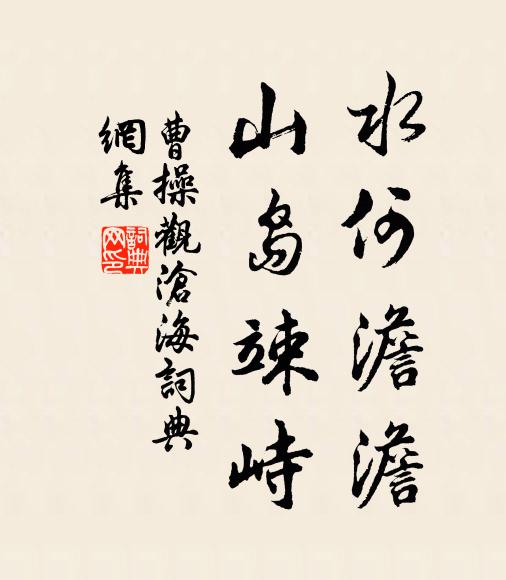 水何澹澹
山島竦峙
曹操觀滄海詞典
網集
詞典
网印